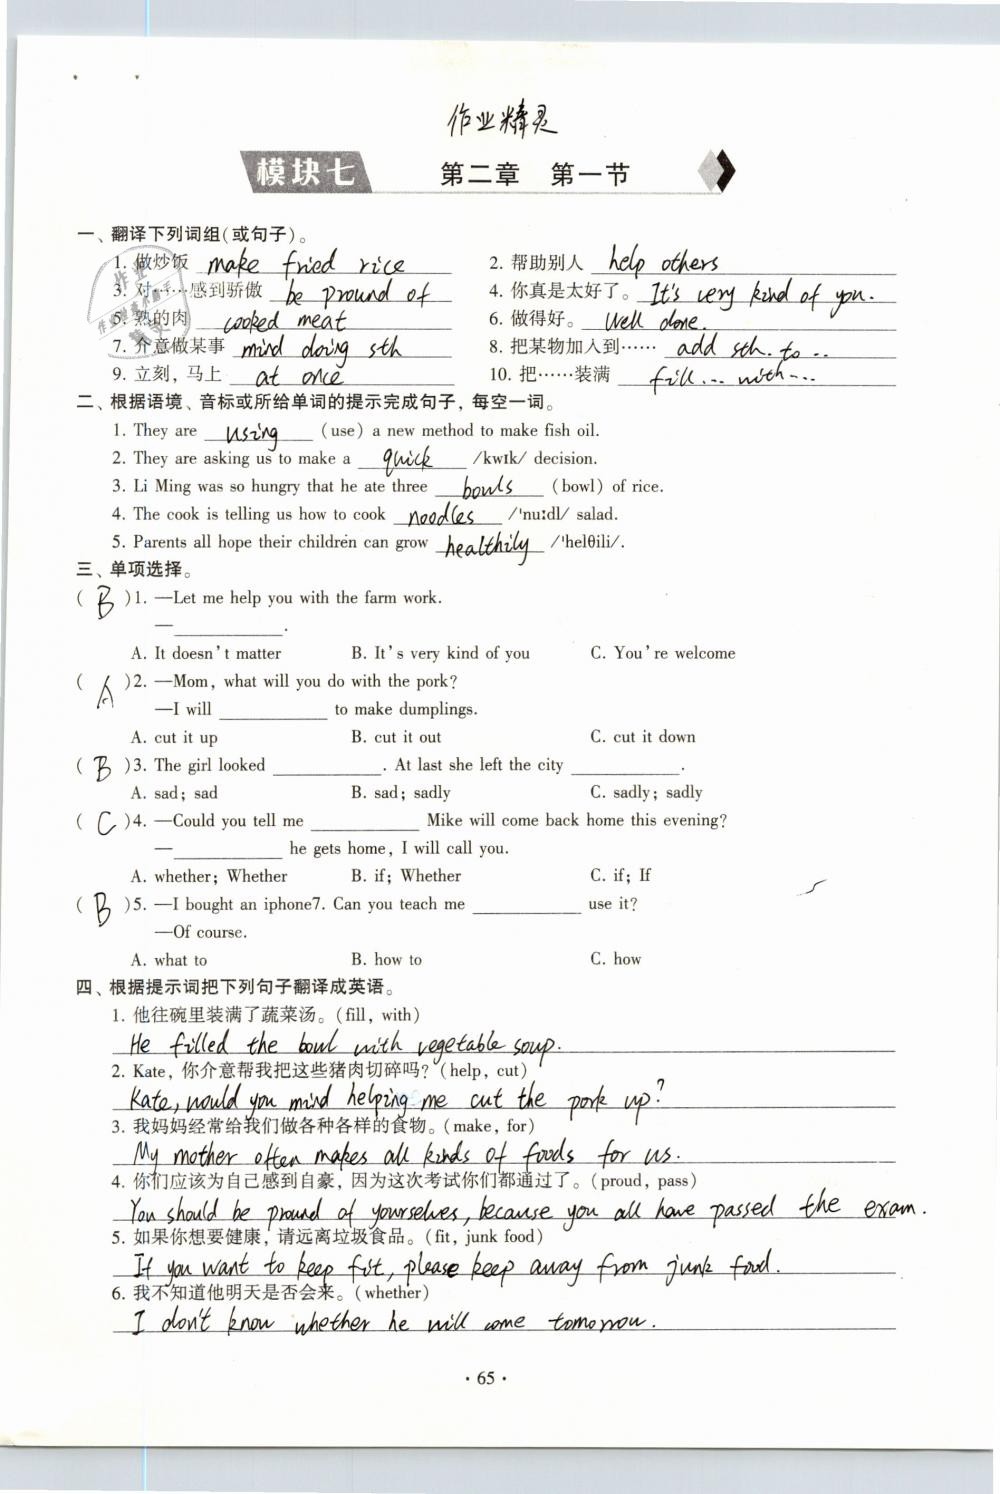 作业精灵
模块七 第二章 第一节
一、翻译下列词组(或句子)。
1. 做炒饭 make fried rice 2. 帮助别人 help others
3. 对……感到骄傲 be pround of 4. 你真是太好了。 It's very kind of you.
5. 熟的肉 cooked meat 6. 做得好。 Well done.
7. 介意做某事 mind doing sth 8. 把某物加入到…… add sth. to ..
9. 立刻, 马上 at once 10. 把……装满 fill... with...
二、根据语境、音标或所给单词的提示完成句子, 每空一词。
1. They are using (use) a new method to make fish oil.
2. They are asking us to make a quick /kwɪk/ decision.
3. Li Ming was so hungry that he ate three bowls (bowl) of rice.
4. The cook is telling us how to cook noodles /'nuːdl/ salad.
5. Parents all hope their children can grow healthily /'helθili/.
三、单项选择。
( B )1. —Let me help you with the farm work.
—____________.
A. It doesn't matter B. It's very kind of you C. You're welcome
( A )2. —Mom, what will you do with the pork?
—I will ____________ to make dumplings.
A. cut it up B. cut it out C. cut it down
( B )3. The girl looked ____________. At last she left the city ____________.
A. sad; sad B. sad; sadly C. sadly; sadly
( C )4. —Could you tell me ____________ Mike will come back home this evening?
—____________ he gets home, I will call you.
A. whether; Whether B. if; Whether C. if; If
( B )5. —I bought an iphone7. Can you teach me ____________ use it?
—Of course.
A. what to B. how to C. how
四、根据提示词把下列句子翻译成英语。
1. 他往碗里装满了蔬菜汤。(fill, with)
He filled the bowl with vegetable soup.
2. Kate, 你介意帮我把这些猪肉切碎吗? (help, cut)
Kate, would you mind helping me cut the pork up?
3. 我妈妈经常给我们做各种各样的食物。(make, for)
My mother often makes all kinds of foods for us.
4. 你们应该为自己感到自豪, 因为这次考试你们都通过了。(proud, pass)
You should be pround of yourselves, because you all have passed the exam.
5. 如果你想要健康, 请远离垃圾食品。(fit, junk food)
If you want to keep fit, please keep away from junk food.
6. 我不知道他明天是否会来。(whether)
I don't know whether he will come tomorrow.
· 65 ·